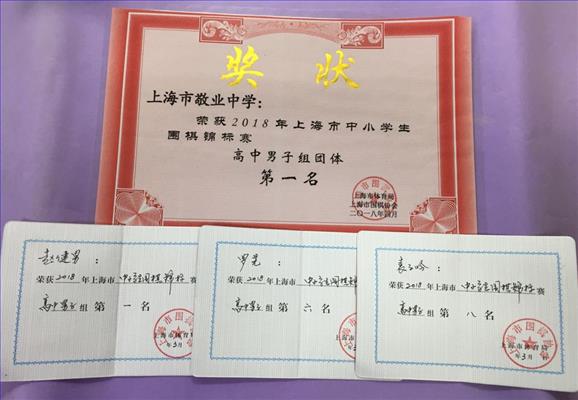 奖状
上海市敬业中学：
荣获2018年上海市中小学生
围棋锦标赛
高中男子组团体
第一名
上海市体育局
上海市围棋协会
二〇一八年四月
赵健男：
荣获2018年上海市中小学生围棋锦标赛
高中男子组 第一名
上海市体育局
年3月
罗尧：
荣获2018年上海市中小学生围棋锦标赛
高中男子组 第六名
上海市体育局
年3月
荣获2018年上海市中小学生围棋锦标赛
高中男子组 第八名
上海市体育局
年3月